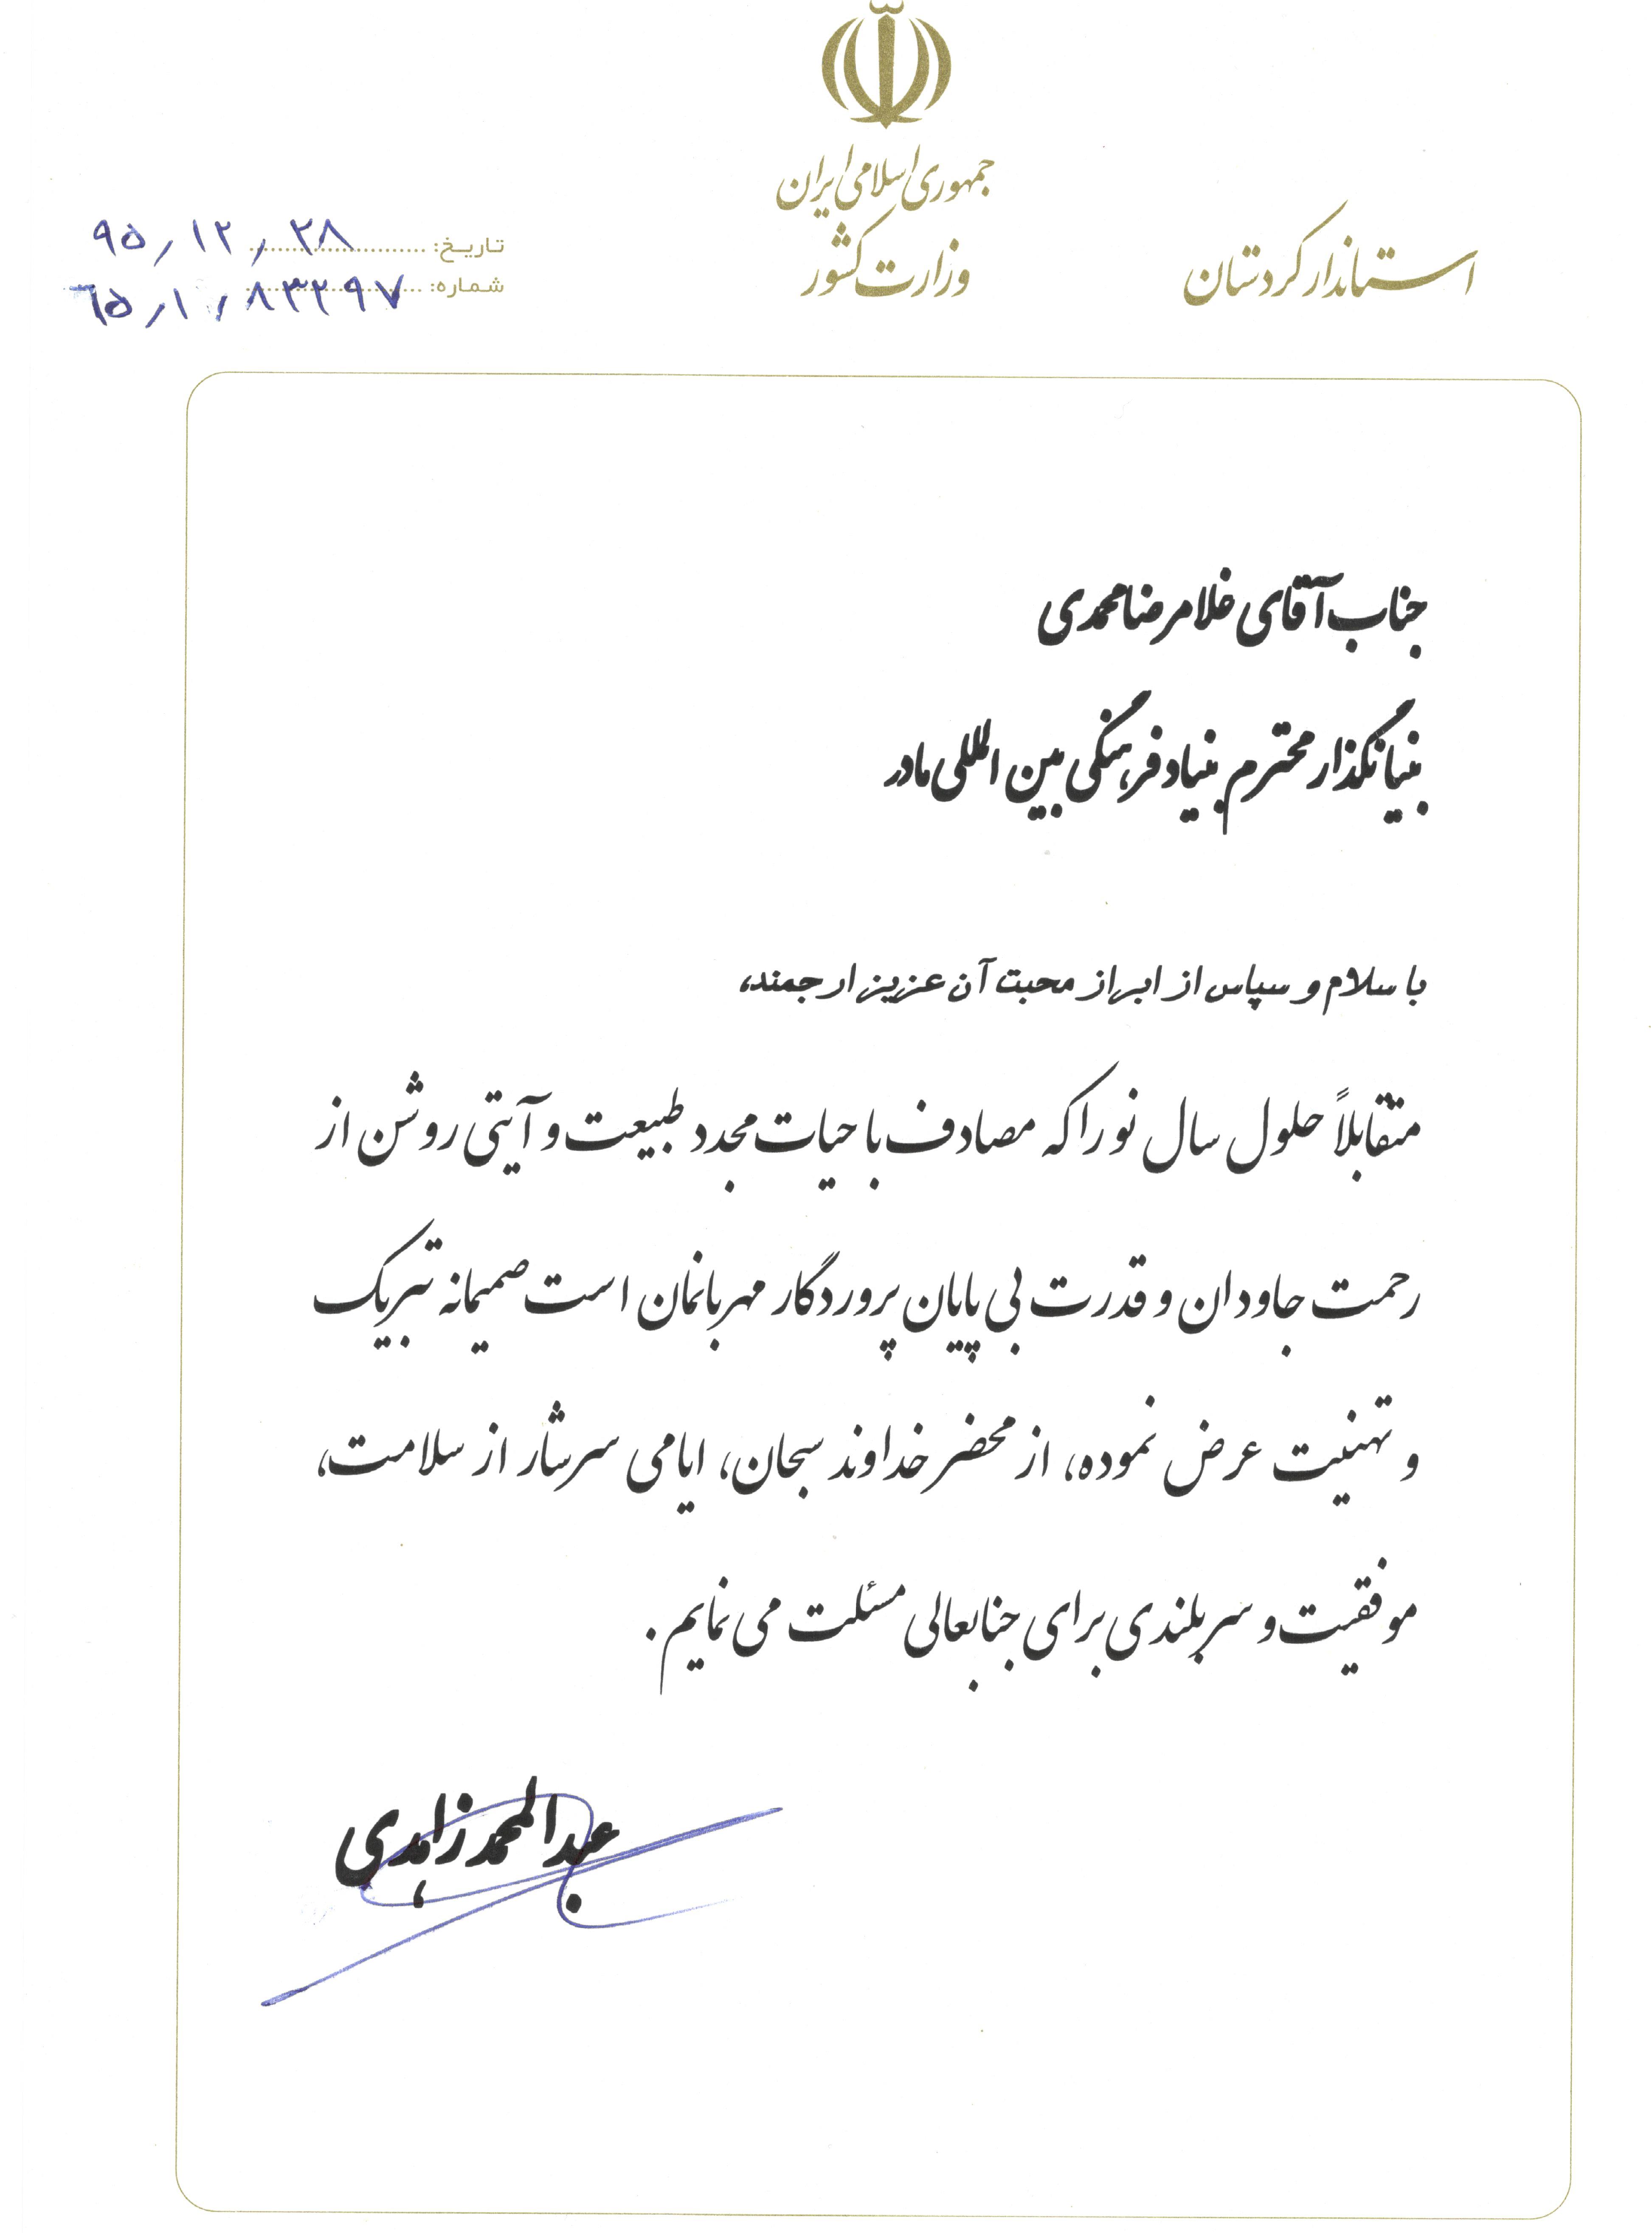 جمهوری اسلامی ایران
وزارت کشور
استاندار کردستان
تاریخ: ۹۵/۱۲/۲۸
شماره: ۶۵/۱/۸۳۲۹۷
جناب آقای غلامرضا محمدی
بنیانگذار محترم بنیاد فرهنگی بین المللی مادر
با سلام و سپاس از ابراز محبت آن عزیز ارجمند،
متقابلاً حلول سال نو را که مصادف با حیات مجدد طبیعت و آیتی روشن از
رحمت جاودان و قدرت بی پایان پروردگار مهربانمان است صمیمانه تبریک
و تهنیت عرض نموده، از محضر خداوند سبحان، ایامی سرشار از سلامت،
موفقیت و سربلندی برای جنابعالی مسئلت می نمایم.
عبدالمحمد زاهدی